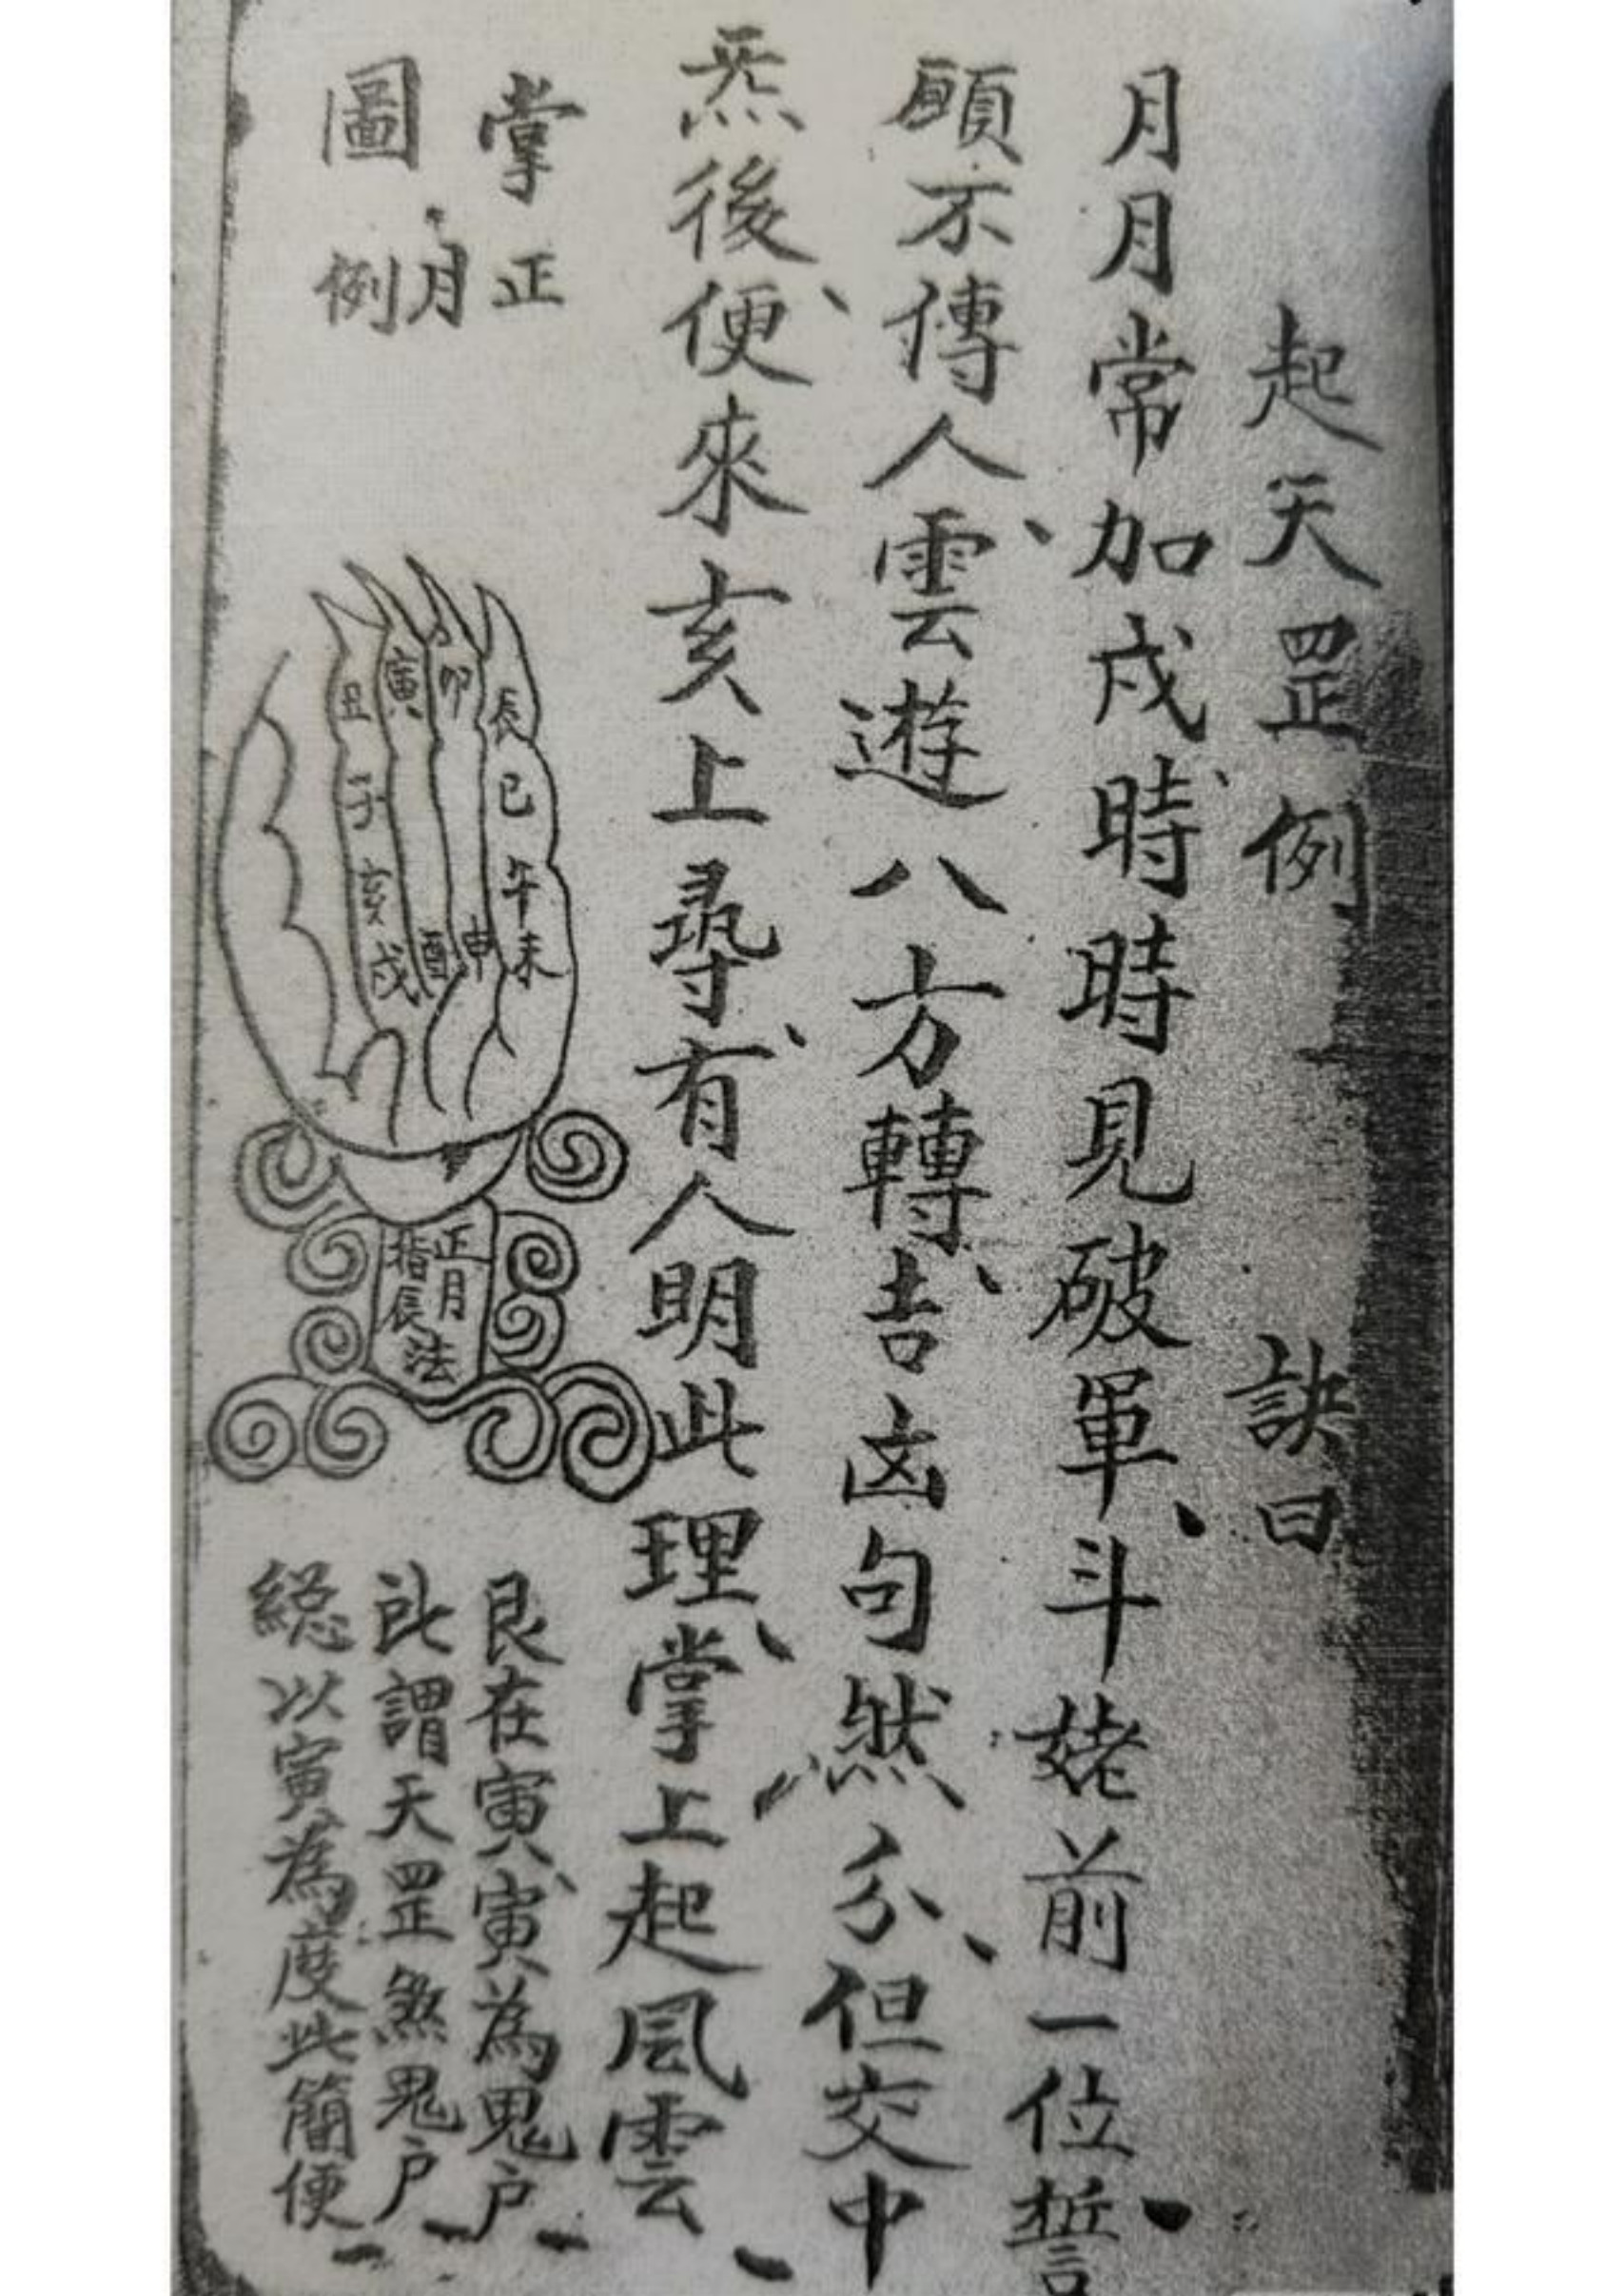 起天罡例 訣曰
月月常加戌時時見破軍、斗姥前一位誓
願不傳人、雲遊八方轉、吉凶句然分、但交中
炁後、便來亥上尋、有人明此理、掌上起風雲
掌圖
正月例
丑寅卯辰
子巳
亥午
戌酉申未
正月
指辰
法
艮在寅、寅為鬼戶
此謂天罡煞鬼戶
総以寅為度此簡便